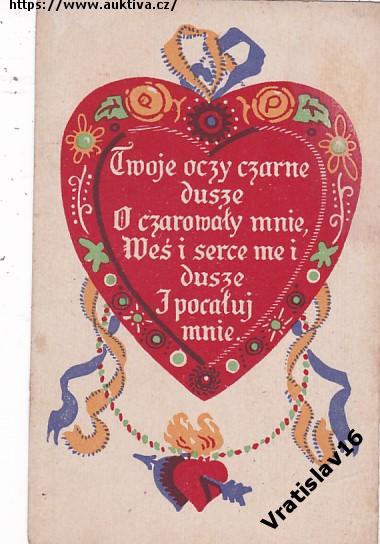 https://www.auktiva.cz/
Twoje oczy czarne
dusze
O czarowały mnie,
Weś i serce me i
dusze
I pocałuj
mnie.
Vratislav16